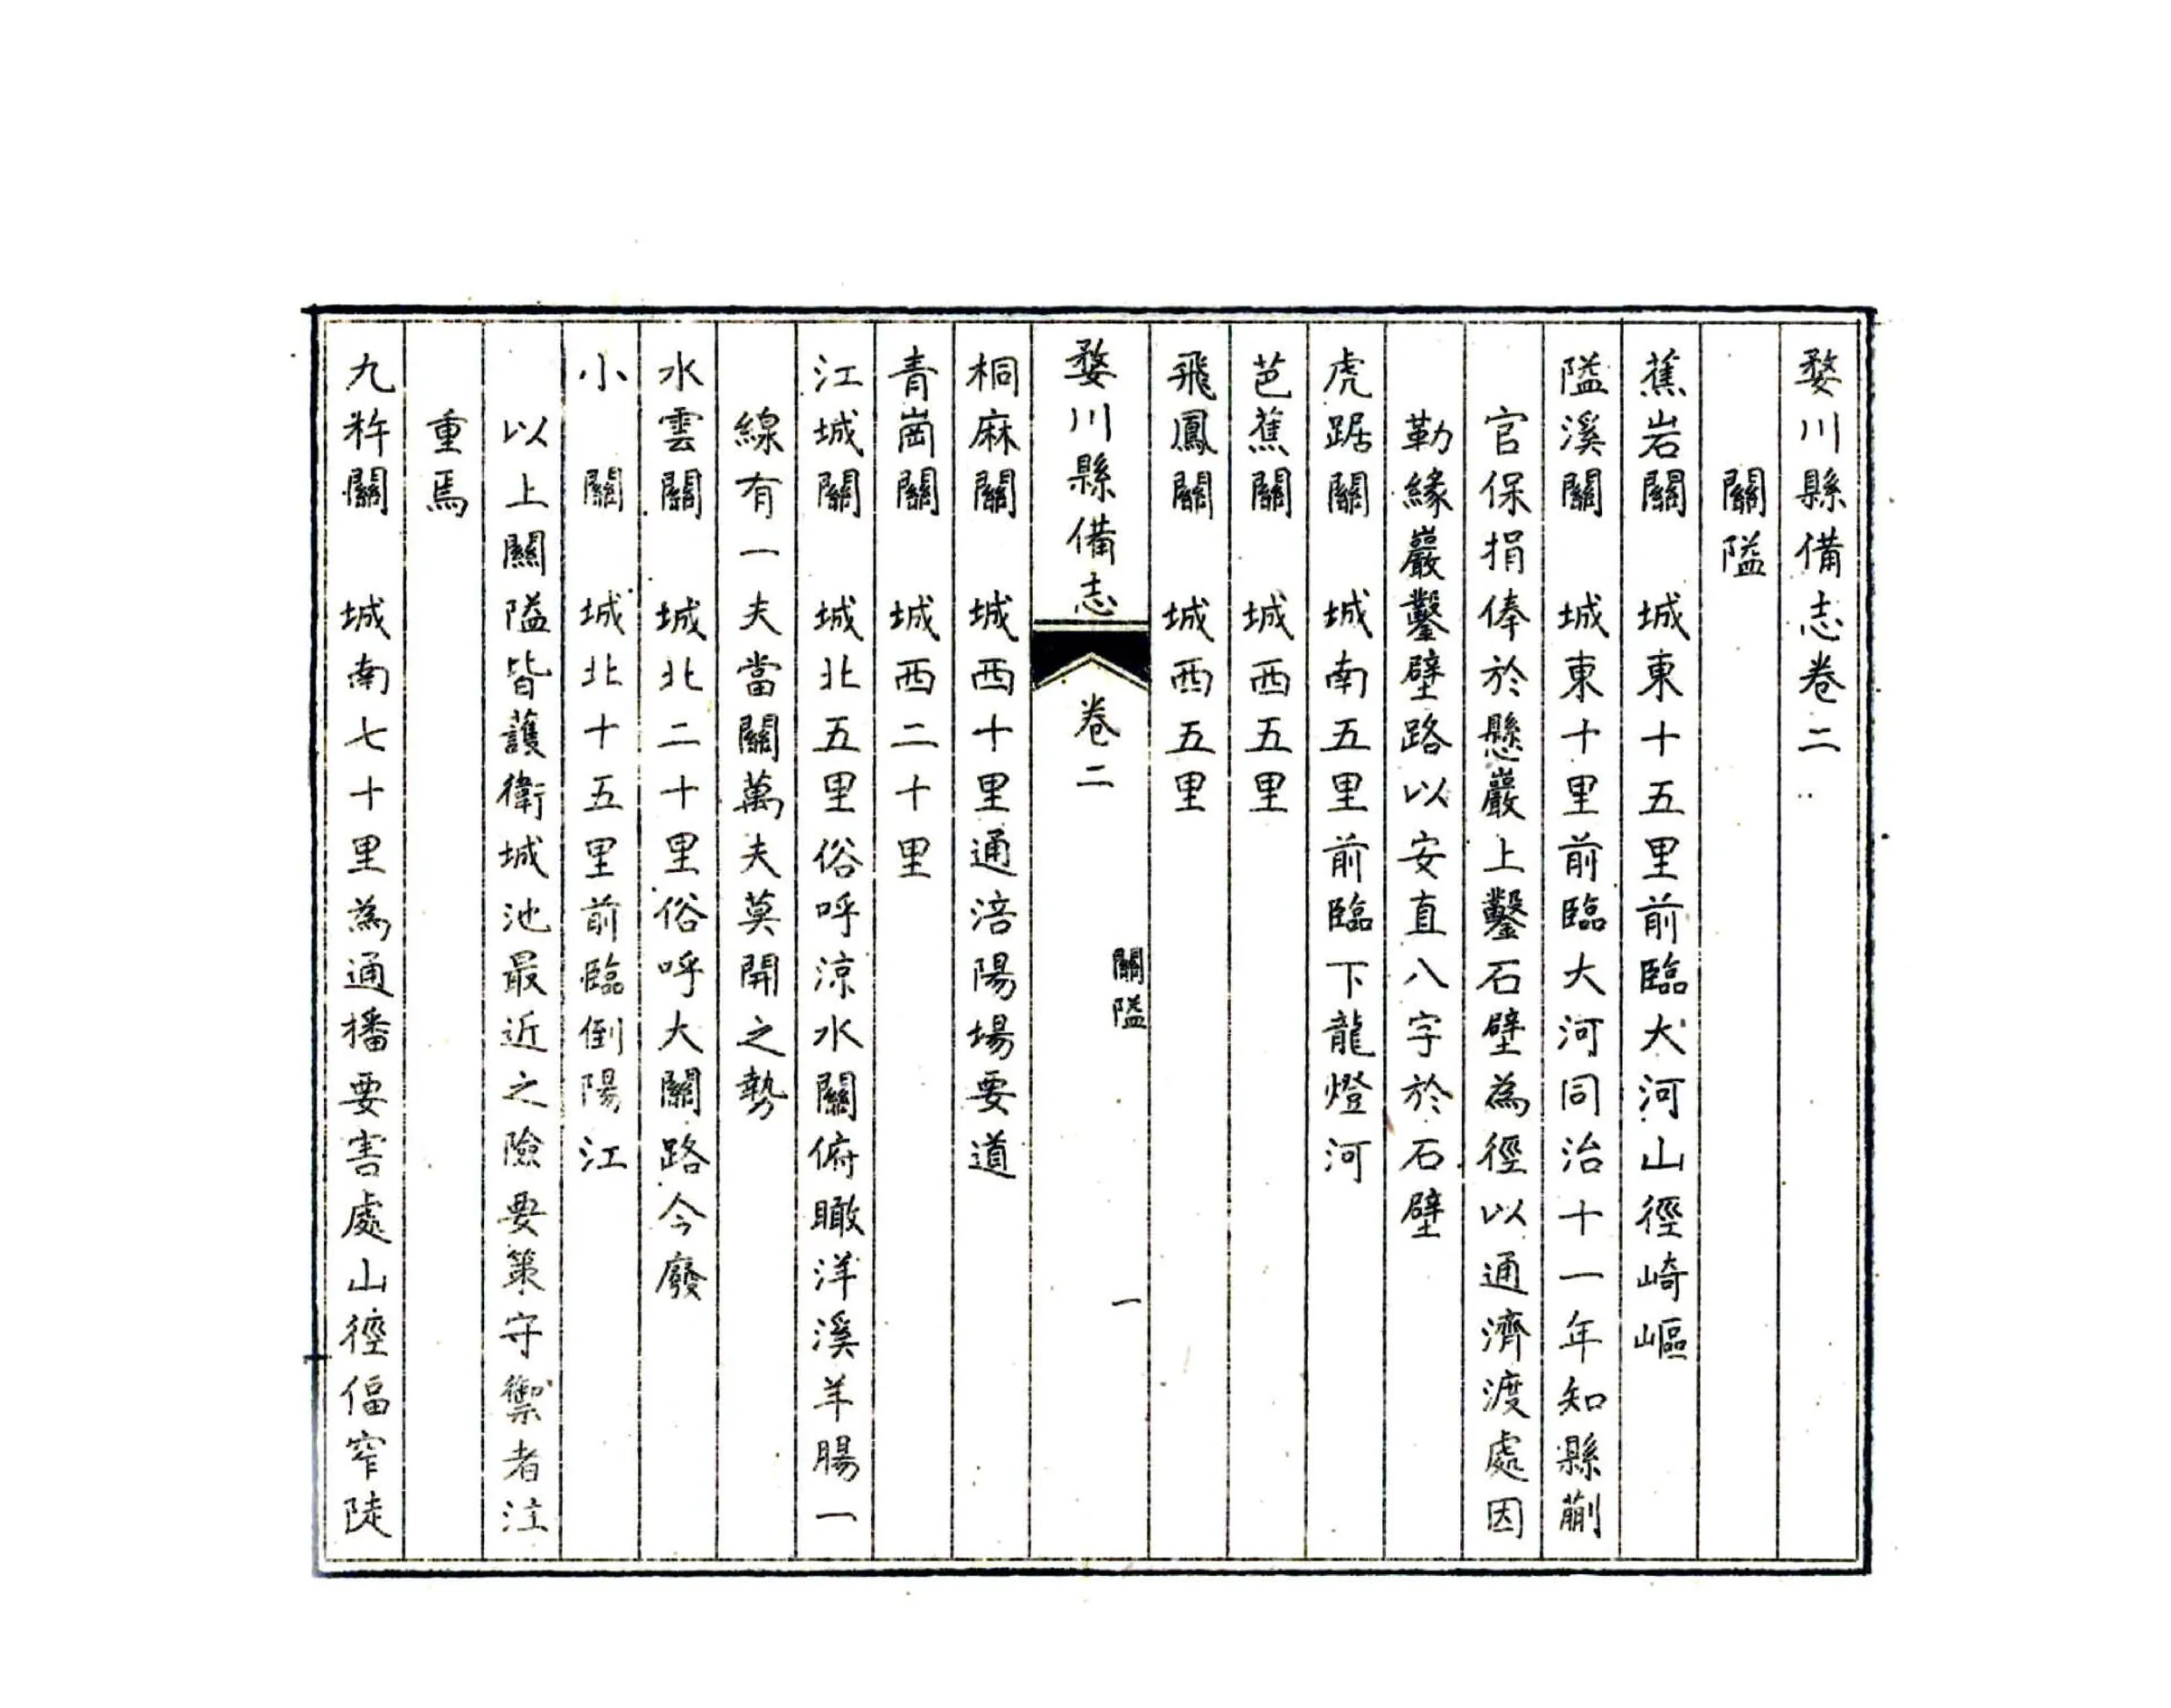 婺川縣備志卷二
關隘
蕉岩關 城東十五里前臨大河山徑崎嶇
隘溪關 城東十里前臨大河同治十一年知縣蒯
官保捐俸於懸巖上鑿石壁為徑以通濟渡處因
勒緣巖鑿壁路以安直八字於石壁
虎踞關 城南五里前臨下龍燈河
芭蕉關 城西五里
飛鳳關 城西五里
婺川縣備志 卷二 關隘 一
桐麻關 城西十里通涪陽場要道
青崗關 城西二十里
江城關 城北五里俗呼涼水關俯瞰洋溪羊腸一
線有一夫當關萬夫莫開之勢
水雲關 城北二十里俗呼大關路今廢
小關 城北十五里前臨倒陽江
以上關隘皆護衛城池最近之險要策守禦者注
重焉
九杵關 城南七十里為通播要害處山徑偪窄陡